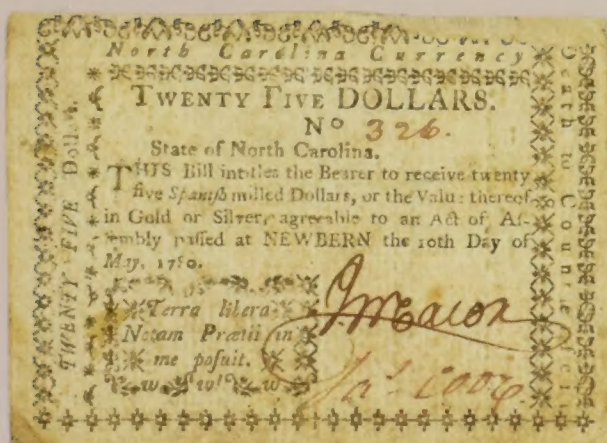 North Carolina Currency
TWENTY FIVE DOLLARS.
No 326.
State of North Carolina.
THIS Bill intitles the Bearer to receive twenty
five Spanish milled Dollars, or the Value thereof
in Gold or Silver, agreeable to an Act of As-
sembly passed at NEWBERN the 10th Day of
May, 1780.
Terra libera
Notam Prætii in
me posuit.
J Macon
Jas Coor
TWENTY FIVE Dollars.
Death to Counterfeit